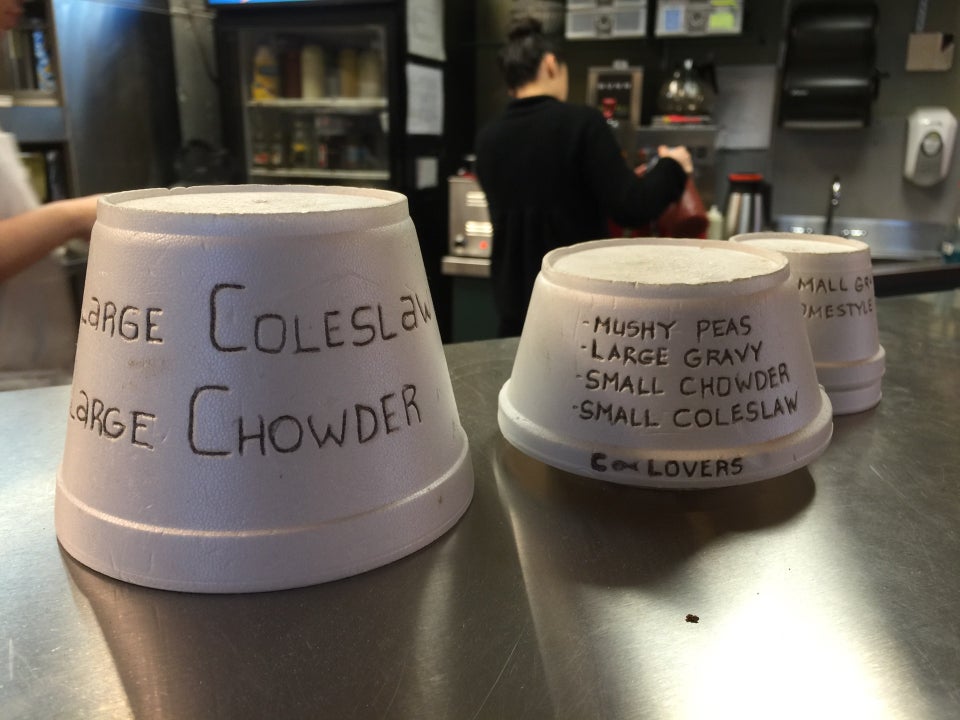 LaRGE COLESLaW
LaRGE CHOWDER
-MUSHY PEAS
-LARGE GRAVY
-SMALL CHOWDER
-SMALL COLESLAW
LOVERS
MALL GR
OMESTYLE